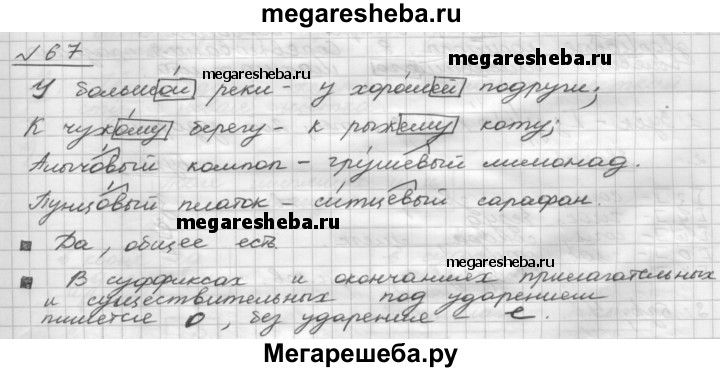 megaresheba.ru
№ 67
megaresheba.ru
megaresheba.ru
У большой реки – у хорошей подруги;
К чужому берегу – к рыжему коту;
Алычовый компот – грушевый лимонад.
Пунцовый платок – ситцевый сарафан.
megaresheba.ru
Да, общее есть.
megaresheba.ru
В суффиксах и окончаниях прилагательных
и существительных под ударением
пишется о, без ударения – е.
megaresheba.ru
Мегарешеба.ру